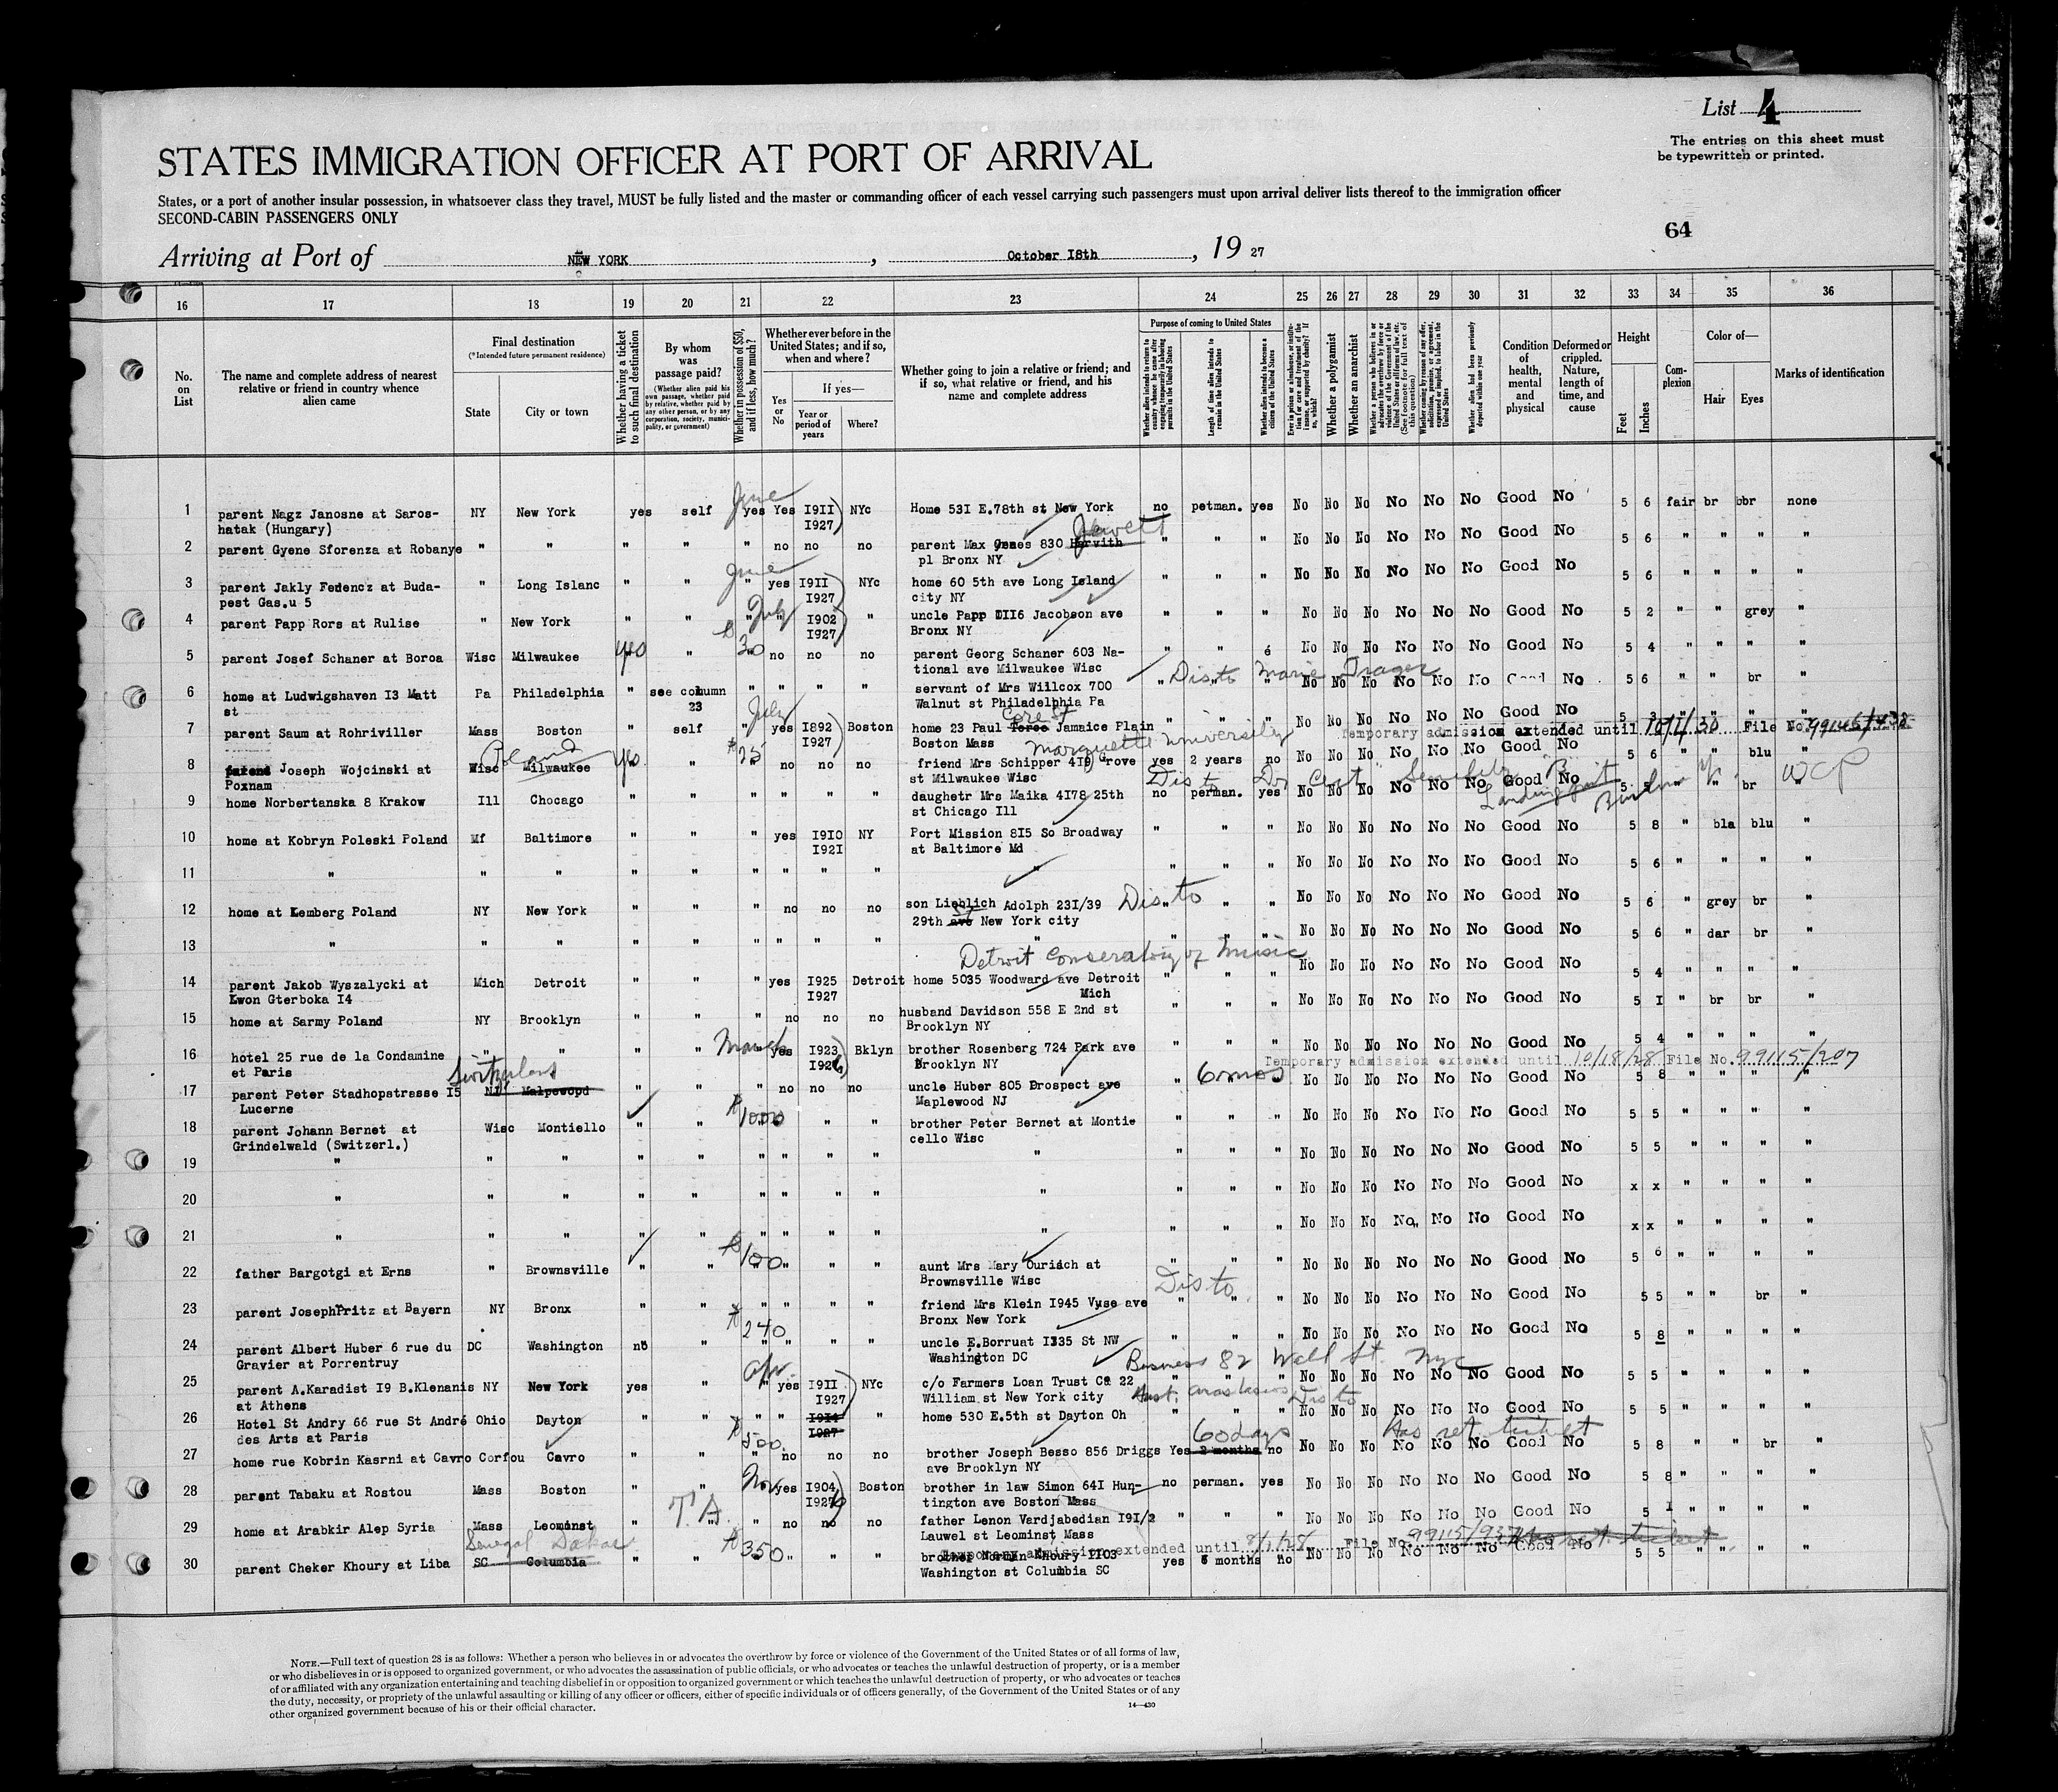 List 4
The entries on this sheet must
be typewritten or printed.
STATES IMMIGRATION OFFICER AT PORT OF ARRIVAL
States, or a port of another insular possession, in whatsoever class they travel, MUST be fully listed and the master or commanding officer of each vessel carrying such passengers must upon arrival deliver lists thereof to the immigration officer
SECOND-CABIN PASSENGERS ONLY
64
Arriving at Port of NEW YORK, October I8th, 19 27
16 17 18 19 20 21 22 23 24 25 26 27 28 29 30 31 32 33 34 35 36
No. on List
The name and complete address of nearest relative or friend in country whence alien came
Final destination
(*Intended future permanent residence)
State
City or town
Whether having a ticket to such final destination
By whom was passage paid?
(Whether alien paid his own passage, whether paid by relative, whether paid by any other person, or by any corporation, society, municipality, or government)
Whether in possession of $50, and if less, how much?
Whether ever before in the United States; and if so, when and where?
Yes or No
If yes—
Year or period of years
Where?
Whether going to join a relative or friend; and if so, what relative or friend, and his name and complete address
Purpose of coming to United States
Length of time alien intends to remain in the United States
Whether alien intends to become a citizen of the United States
Whether a polygamist
Whether an anarchist
Condition of health, mental and physical
Deformed or crippled. Nature, length of time, and cause
Height
Feet
Inches
Complexion
Color of—
Hair
Eyes
Marks of identification
1 parent Nagz Janosne at Saros- NY New York yes self June yes Yes I9II NYc Home 53I E.78th st New York no petman. yes No No No No No No Good No 5 6 fair br bbr none
hatak (Hungary) I927
2 parent Gyene Sforenza at Robanye " " " " " no no no parent Max 830 Horvith Jewett " " " No No No No No No Good No 5 6 " " " "
pl Bronx NY
3 parent Jakly Fedencz at Buda- " Long Islanc " " June " yes I9II NYc home 60 5th ave Long Island " " " No No No No No No Good No 5 6 " " " "
pest Gas.u 5 I927 city NY
4 parent Papp Rors at Rulise " New York " " July " " I902 " uncle Papp III6 Jacobson ave " " " No No No No No No Good No 5 2 " " grey "
I927 Bronx NY
5 parent Josef Schaner at Boroa Wisc Milwaukee yes " $ 30 no no no parent Georg Schaner 603 Na- " " é No No No No No No Good No 5 4 " " " "
tional ave Milwaukee Wisc
6 home at Ludwigshaven I3 Matt Pa Philadelphia " see column " " " " servant of Mrs Willcox 700 " Dis to Marie Trager No No No No No No Good No 5 6 " " br "
st 23 Walnut st Philadelphia Pa
7 parent Saum at Rohriviller Mass Boston " self July " yes I892 Boston home 23 Paul Terce Jamaice Plain " " " No No No No No No Good No 5 3 " " " "
I927 Boston Mass
Temporary admission extended until 10/1/30 File No. 99145/438
Marquette University
8 parend Joseph Wojcinski at Wisc Milwaukee Poland yes " $25 no no no friend Mrs Schipper 4I9 Grove yes 2 years no No No No No No No Good No 5 6 " " blu "
Poxnam st Milwaukee Wisc
9 home Norbertanska 8 Krakow Ill Chocago " " " " " " daughetr Mrs Maika 4I78 25th Dis to no perman. yes No No No No No No Good No 5 " " br " WCP
st Chicago Ill
10 home at Kobryn Poleski Poland Mf Baltimore " " " yes I9IO NY Port Mission 8I5 So Broadway " " " No No No No No No Good No 5 8 " bla blu "
I92I at Baltimore Md
11 " " " " " " " " " " " " " No No No No No No Good No 5 6 " " " "
12 home at Lemberg Poland NY New York " " " no no no son Lieblich Adolph 23I/39 Dis to " " " No No No No No No Good No 5 6 " grey br "
29th ave St New York city
13 " " " " " " " " " " " " " No No No No No No Good No 5 6 " dar br "
Detroit Conservatory of Music
14 parent Jakob Wyszalycki at Mich Detroit " " " yes I925 Detroit home 5035 Woodward ave Detroit " " " No No No No No No Good No 5 4 " " " "
Lwon Gterboka I4 I927 Mich
15 home at Sarmy Poland NY Brooklyn " " " no no no husband Davidson 558 E 2nd st " " " No No No No No No Good No 5 I " br br "
Brooklyn NY
16 hotel 25 rue de la Condamine " " " " March yes I923 Bklyn brother Rosenberg 724 Park ave No No No No No No Good No 5 4 " " " "
et Paris I926 Brooklyn NY
Temporary admission extended until 10/18/28 File No. 99115/207
17 parent Peter Stadhopstrasse I5 NJ Malpewopd Switzerland " " " no no no uncle Huber 805 Prospect ave " 6 mos No No No No No No Good No 5 8 " " " "
Lucerne Maplewood NJ
18 parent Johann Bernet at Wisc Montiello " " $1000 " " brother Peter Bernet at Montie " " " No No No No No No Good No 5 5 " " " "
Grindelwald (Switzerl.) cello Wisc
19 " " " " " " " " " " " " " No No No No No No Good No 5 5 " " " "
20 " " " " " " " " " " " " " No No No No No No Good No x x " " " "
21 " " " " " " " " " " " " " No No No No No No Good No x x " " " "
22 father Bargotgi at Erns " Brownsville " " $100 " " " aunt Mrs Mary Ourisch at " " " No No No No No No Good No 5 6 " " " "
Brownsville Wisc
Dis to
23 parent Joseph Pritz at Bayern NY Bronx " " " " " " friend Mrs Klein I945 Vyse ave " " " No No No No No No Good No 5 5 " " br "
Bronx New York
24 parent Albert Huber 6 rue du DC Washington no " $240 " " " uncle E.Borruat I335 St NW " " " No No No No No No Good No 5 8 " " " "
Gravier at Porrentruy Washington DC
Business 82 Wall St. Nyc
25 parent A.Karadist I9 B.Klenanis NY New York yes " Apr " yes I9II NYc c/o Farmers Loan Trust Co 22 " " " No No No No No No Good No 5 5 " " " "
at Athens I927 William st New York city
Dis to
26 Hotel St Andry 66 rue St André Ohio Dayton " " " " I9I4 " home 530 E.5th st Dayton Oh " " " No No No No No No Good No 5 5 " " " "
des Arts at Paris I927
27 home rue Kobrin Kasrni at Cavro Corfou Cavro " " $500. no no no brother Joseph Besso 856 Driggs Yes 2 months 60 days no No No No No No No Good No 5 8 " " br "
ave Brooklyn NY
Has ret ticket
28 parent Tabaku at Rostou Mass Boston " " Nov yes I904 Boston brother in law Simon 64I Hun- no perman. yes No No No No No No Good No 5 8 " " " "
tington ave Boston Mass
29 home at Arabkir Alep Syria Mass Leominst " T.A. " no no no father Lenon Vardjabedian I9I/2 " " " No No No No No No Good No 5 I " " " "
Lauwel st Leominst Mass
Temporary admission extended until 8/1/28 File No. 99115/937
30 parent Cheker Khoury at Liba SC Columbia Senegal Dakar " " $350 " " " brother Norman Khoury II03 yes 6 months no No No No No No No Good No 5 5 " " " "
Washington st Columbia SC
NOTE.—Full text of question 28 is as follows: Whether a person who believes in or advocates the overthrow by force or violence of the Government of the United States or of all forms of law,
or who disbelieves in or is opposed to organized government, or who advocates the assassination of public officials, or who advocates or teaches the unlawful destruction of property, or is a member
of or affiliated with any organization entertaining and teaching disbelief in or opposition to organized government or which teaches the unlawful destruction of property, or who advocates or teaches
the duty, necessity, or propriety of the unlawful assaulting or killing of any officer or officers, either of specific individuals or of officers generally, of the Government of the United States or of any
other organized government because of his or their official character.
14—430